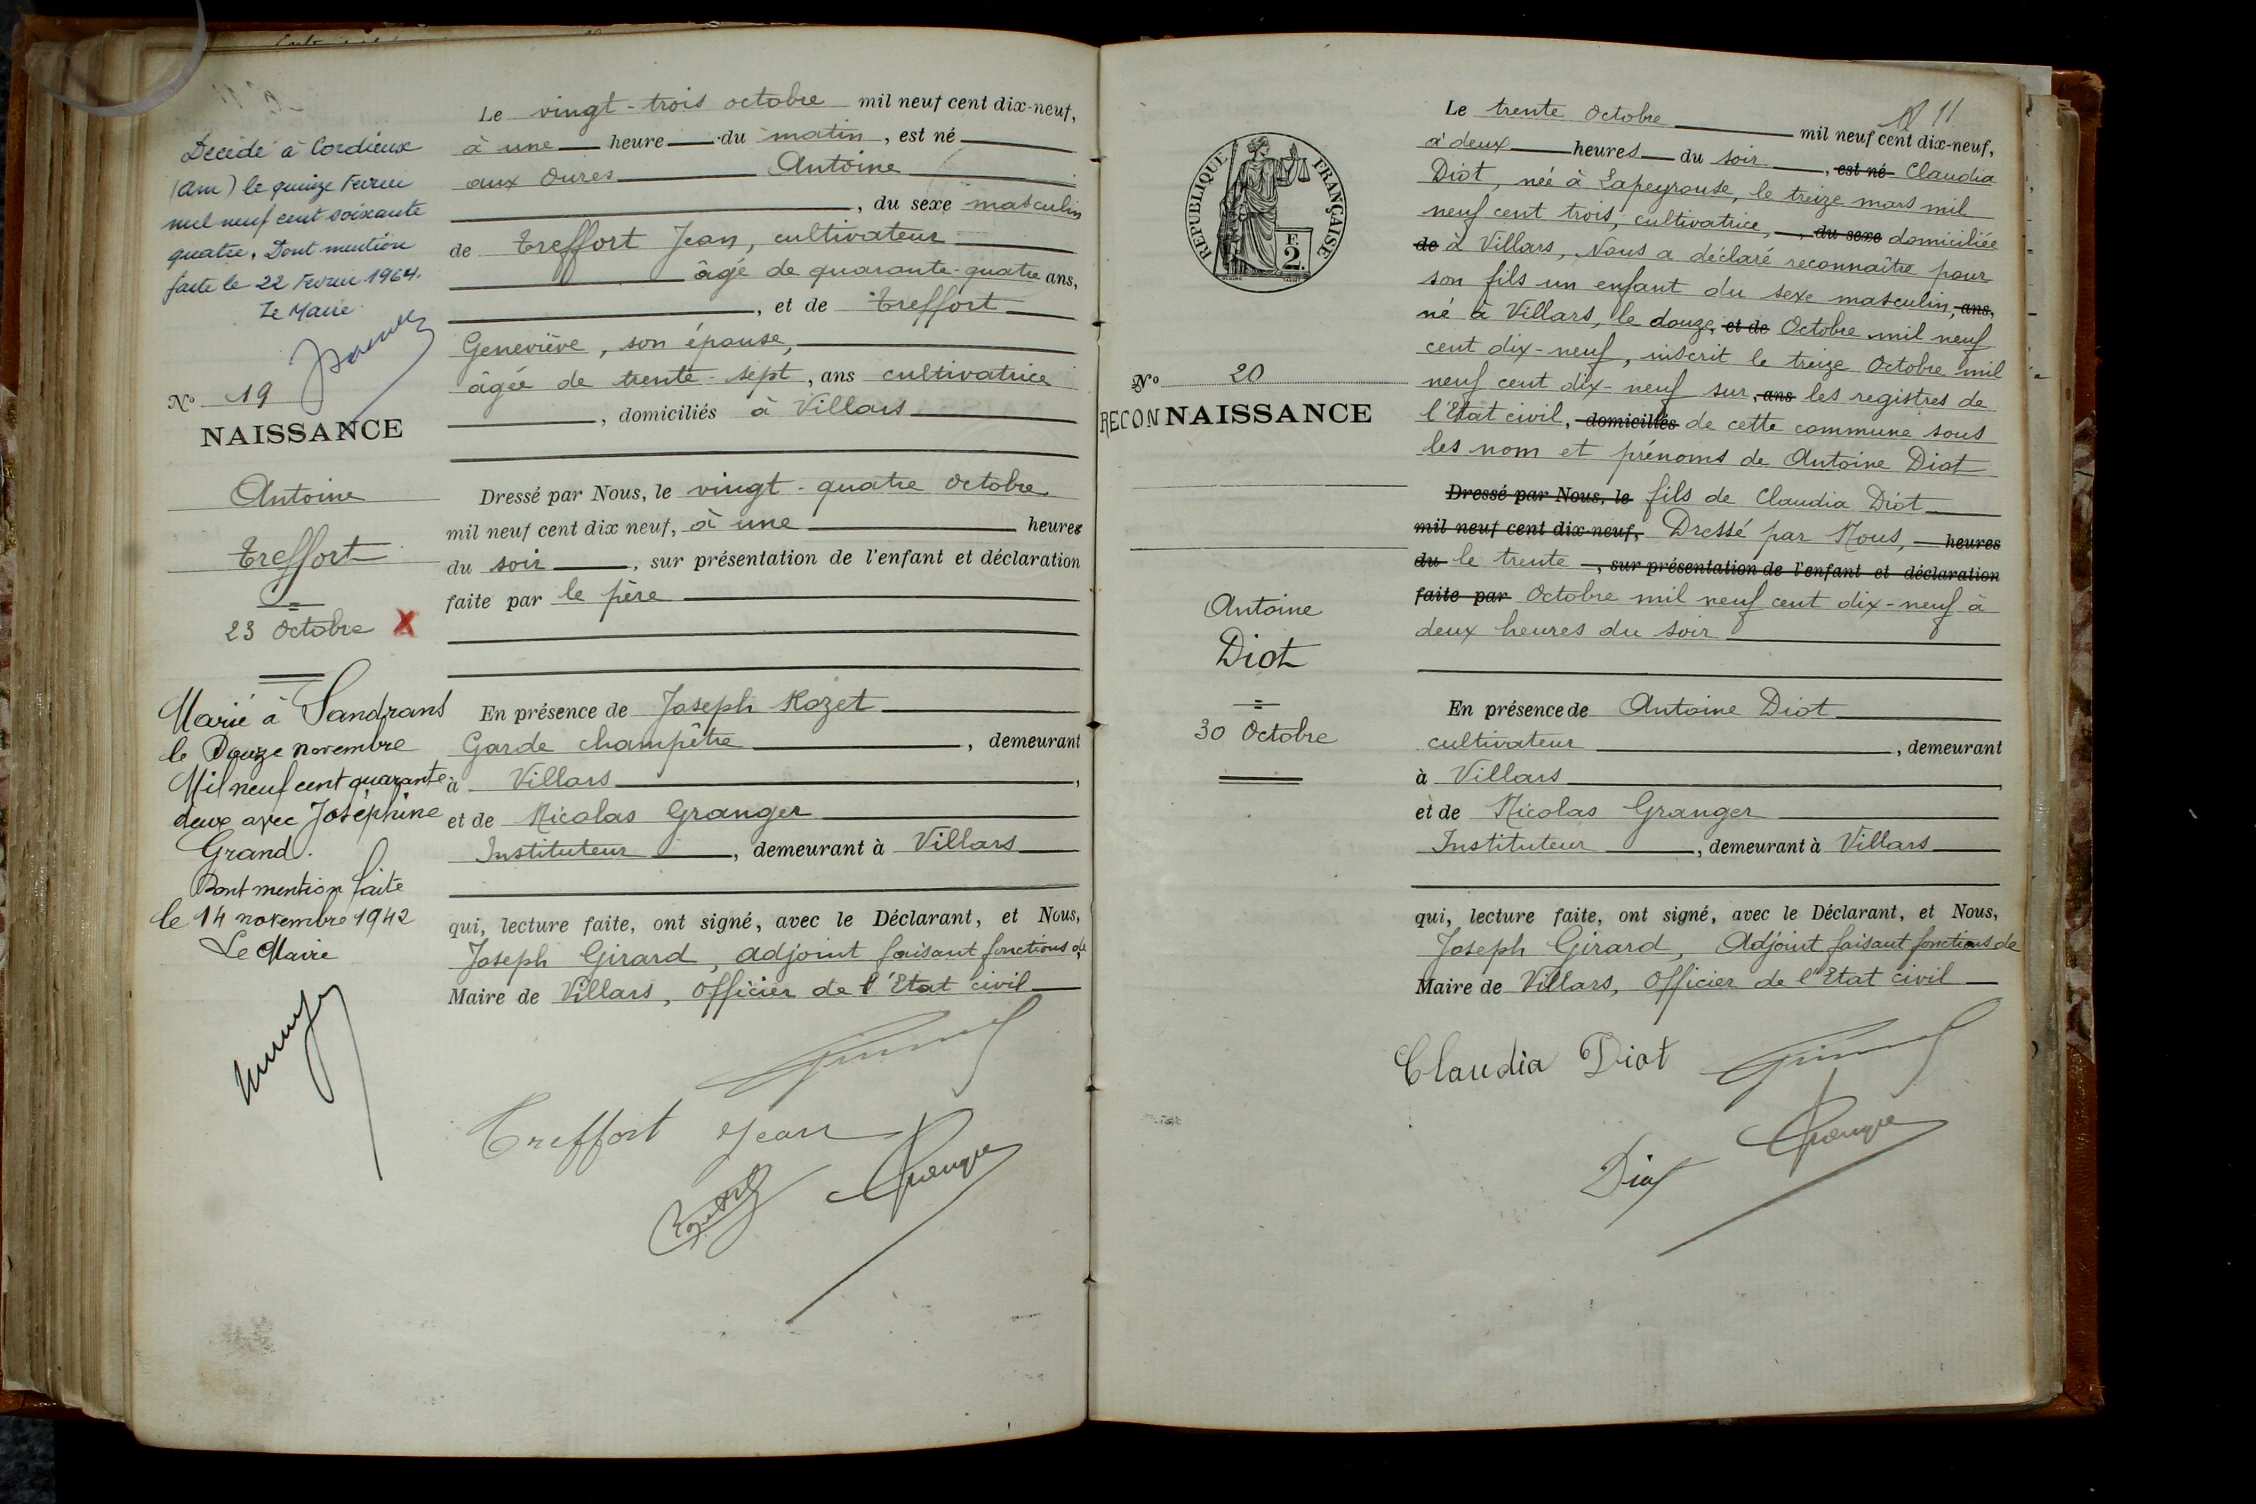 Décédé à Cordieux
(Ain) le quinze Fevrier
mil neuf cent soixante
quatre. Dont mention
faite le 22 Fevrier 1964.
Le Maire
N° 19
NAISSANCE
Antoine
Treffort
23 Octobre X
Marié à Sandrans
le Douze novembre
Mil neuf cent quarante
deux avec Joséphine
Grand.
Dont mention faite
le 14 novembre 1942
Le Maire
Le vingt-trois octobre mil neuf cent dix-neuf,
à une heure du matin, est né
aux Oures Antoine
, du sexe masculin
de Treffort Jean, cultivateur
âgé de quarante-quatre ans,
, et de Treffort
Geneviève, son épouse,
âgée de trente-sept, ans cultivatrice
, domiciliés à Villars
Dressé par Nous, le vingt-quatre Octobre
mil neuf cent dix neuf, à une heures
du soir, sur présentation de l'enfant et déclaration
faite par le père
En présence de Joseph Rozet
Garde champêtre, demeurant
à Villars,
et de Nicolas Granger
Instituteur, demeurant à Villars
qui, lecture faite, ont signé, avec le Déclarant, et Nous,
Joseph Girard, adjoint faisant fonctions de
Maire de Villars, Officier de l'Etat civil
Treffort Jean
11
RÉPUBLIQUE FRANÇAISE
F.
2.
N° 20
RECONNAISSANCE
Antoine
Diot
30 Octobre
Le trente Octobre mil neuf cent dix-neuf,
à deux heures du soir, est né Claudia
Diot, née à Lapeyrouse, le treize mars mil
neuf cent trois, cultivatrice, , du sexe domiciliée
de à Villars, Nous a déclaré reconnaître pour
son fils un enfant du sexe masculin, ans,
né à Villars, le douze, et de Octobre mil neuf
cent dix-neuf, inscrit le treize Octobre mil
neuf cent dix-neuf sur, ans les registres de
l'Etat civil, domiciliés de cette commune sous
les nom et prénoms de Antoine Diot
Dressé par Nous, le fils de Claudia Diot
mil neuf cent dix-neuf, Dressé par Nous, heures
du le trente, sur présentation de l'enfant et déclaration
faite par Octobre mil neuf cent dix-neuf à
deux heures du soir
En présence de Antoine Diot
cultivateur, demeurant
à Villars
et de Nicolas Granger
Instituteur, demeurant à Villars
qui, lecture faite, ont signé, avec le Déclarant, et Nous,
Joseph Girard, Adjoint faisant fonctions de
Maire de Villars, Officier de l'Etat civil
Claudia Diot
Diot